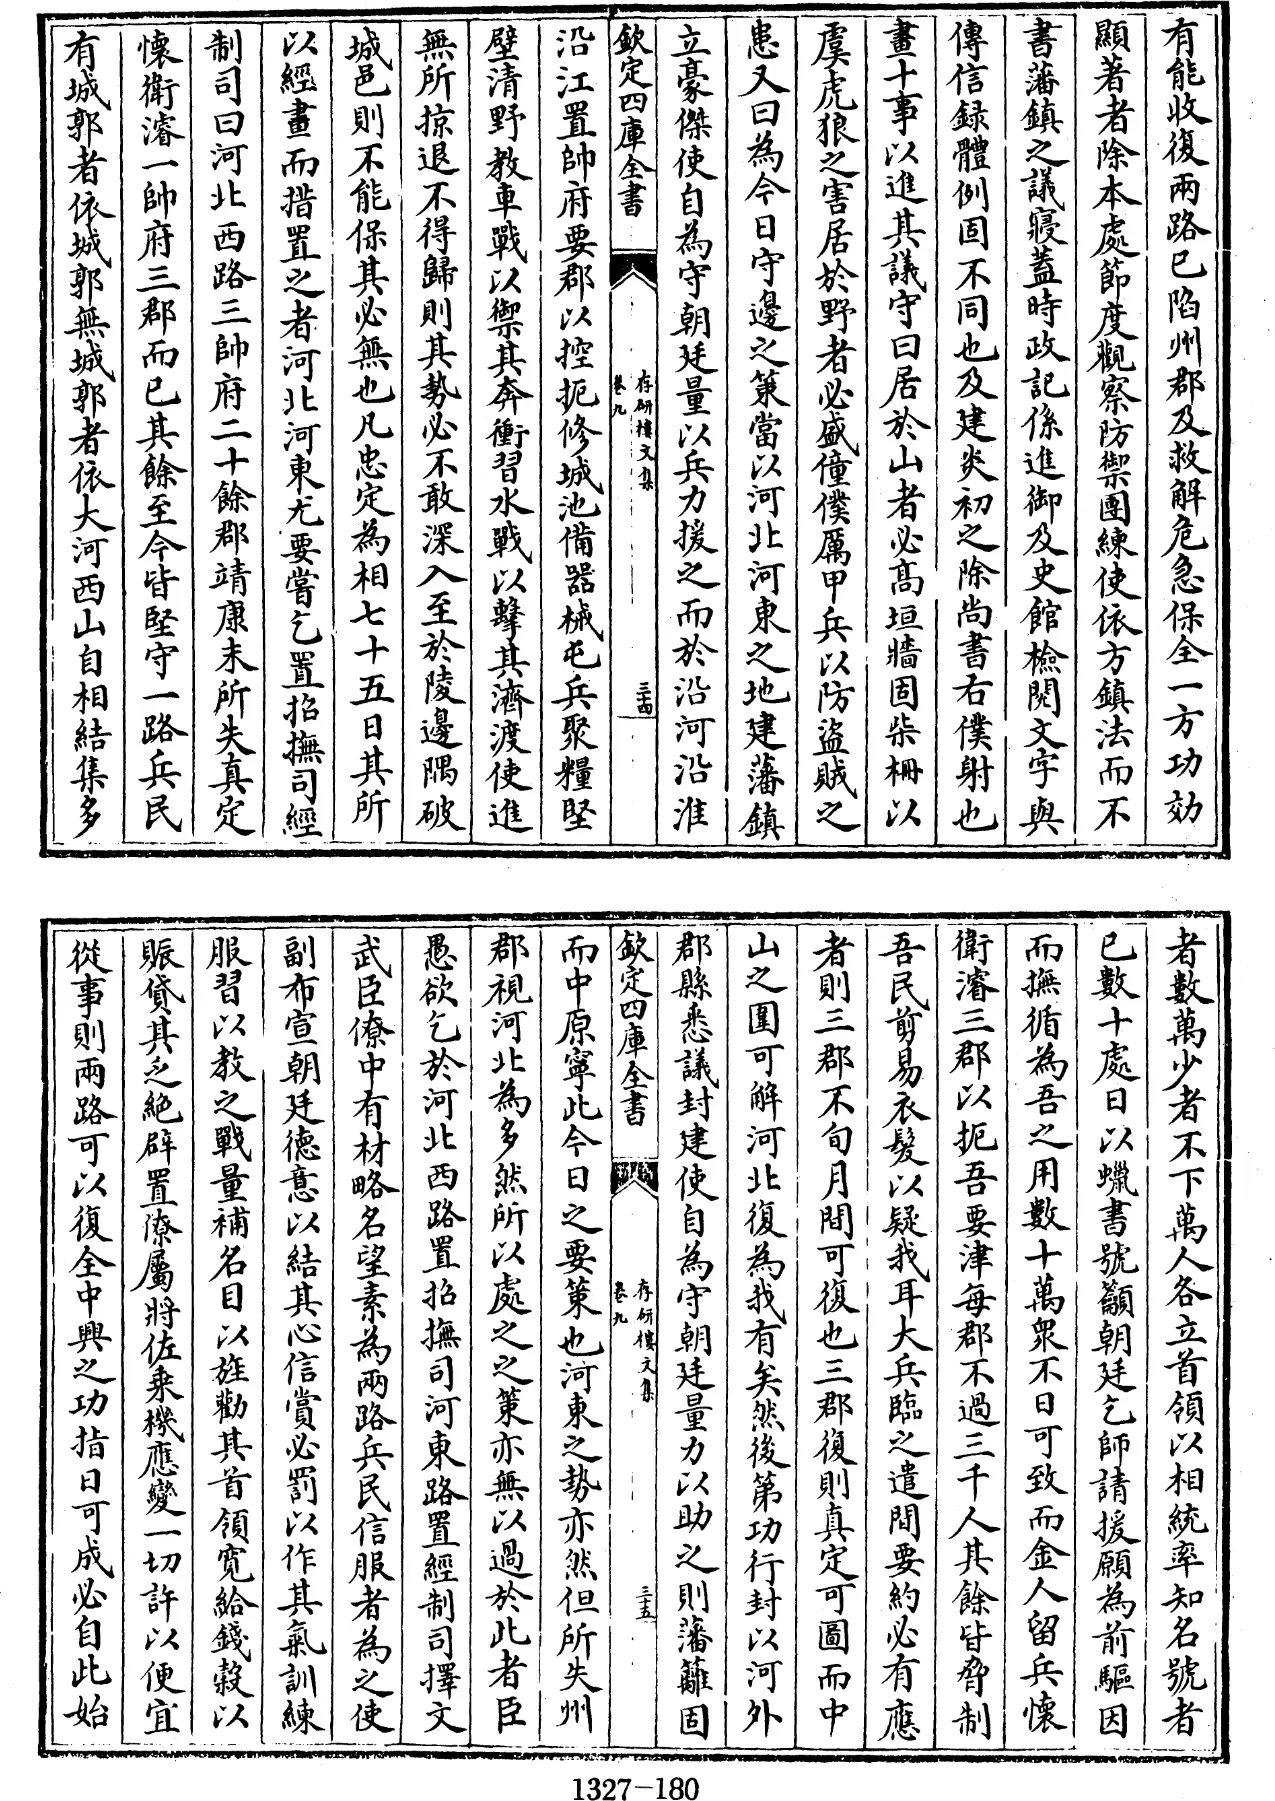 有能收復兩路已陷州郡及救解危急保全一方功効
顯著者除本處節度觀察防禦團練使依方鎮法而不
書藩鎮之議寢蓋時政記係進御及史館檢閱文字與
傳信録體例固不同也及建炎初之除尚書右僕射也
畫十事以進其議守曰居於山者必高垣牆固柴柵以
虞虎狼之害居於野者必盛僮僕厲甲兵以防盜賊之
患又曰為今日守邊之策當以河北河東之地建藩鎮
立豪傑使自為守朝廷量以兵力援之而於沿河沿淮
欽定四庫全書
存研樓文集
卷九
三十四
沿江置帥府要郡以控扼修城池備器械屯兵聚糧堅
壁清野教車戰以禦其奔衝習水戰以擊其濟渡使進
無所掠退不得歸則其勢必不敢深入至於陵邊隅破
城邑則不能保其必無也凡忠定為相七十五日其所
以經畫而措置之者河北河東尤要嘗乞置招撫司經
制司曰河北西路三帥府二十餘郡靖康末所失真定
懷衛濬一帥府三郡而已其餘至今皆堅守一路兵民
有城郭者依城郭無城郭者依大河西山自相結集多
者數萬少者不下萬人各立首領以相統率知名號者
已數十處日以蠟書號籲朝廷乞師請援願為前驅因
而撫循為吾之用數十萬衆不日可致而金人留兵懷
衛濬三郡以扼吾要津每郡不過三千人其餘皆脅制
吾民剪易衣髮以疑我耳大兵臨之遣間要約必有應
者則三郡不旬月間可復也三郡復則真定可圖而中
山之圍可解河北復為我有矣然後第功行封以河外
郡縣悉議封建使自為守朝廷量力以助之則藩籬固
欽定四庫全書
存研樓文集
卷九
三十五
而中原寧此今日之要策也河東之勢亦然但所失州
郡視河北為多然所以處之之策亦無以過於此者臣
愚欲乞於河北西路置招撫司河東路置經制司擇文
武臣僚中有材略名望素為兩路兵民信服者為之使
副布宣朝廷德意以結其心信賞必罰以作其氣訓練
服習以教之戰量補名目以旌勸其首領寬給錢穀以
賑貸其乏絶辟置僚屬將佐乘機應變一切許以便宜
從事則兩路可以復全中興之功指日可成必自此始
1327-180